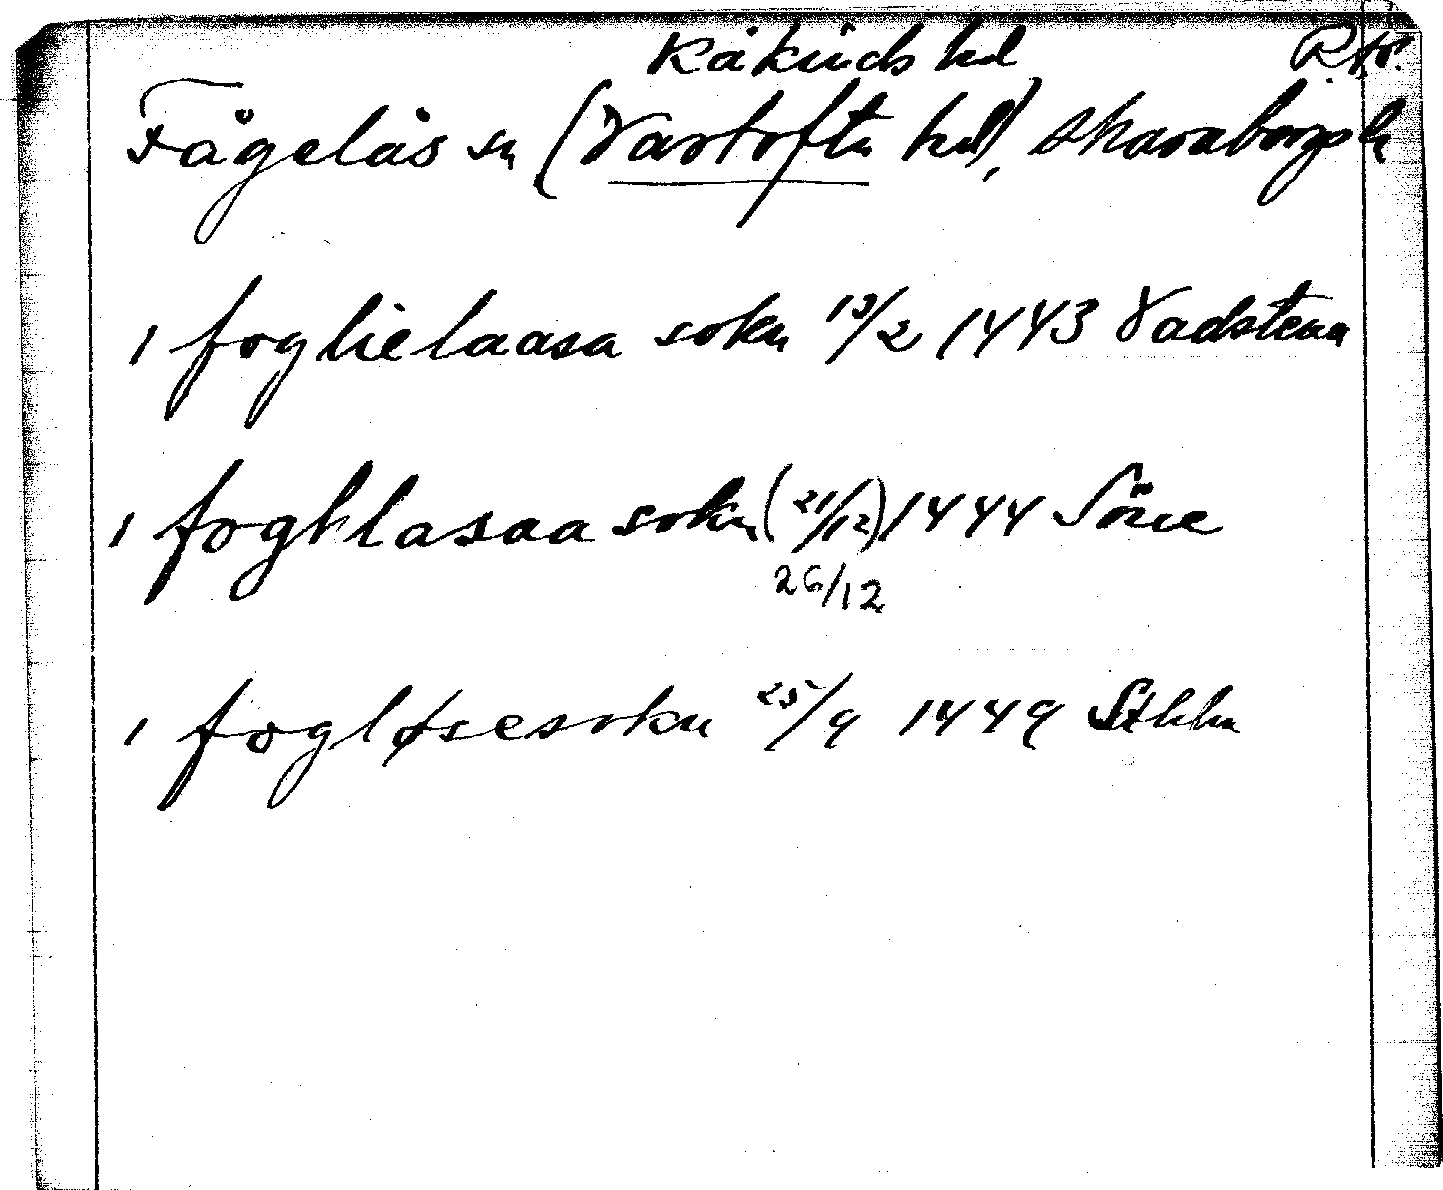 Kåkinds hd R.A.
Fågelås sn (Vartofta hd), Skaraborgs l.
1 foghelaasa sokn 13/2 1443 Vadstena
1 foghlasaa sokn (21/12) 1444 Söne
26/12
1 fogløsesokn 25/9 1449 Sthlm